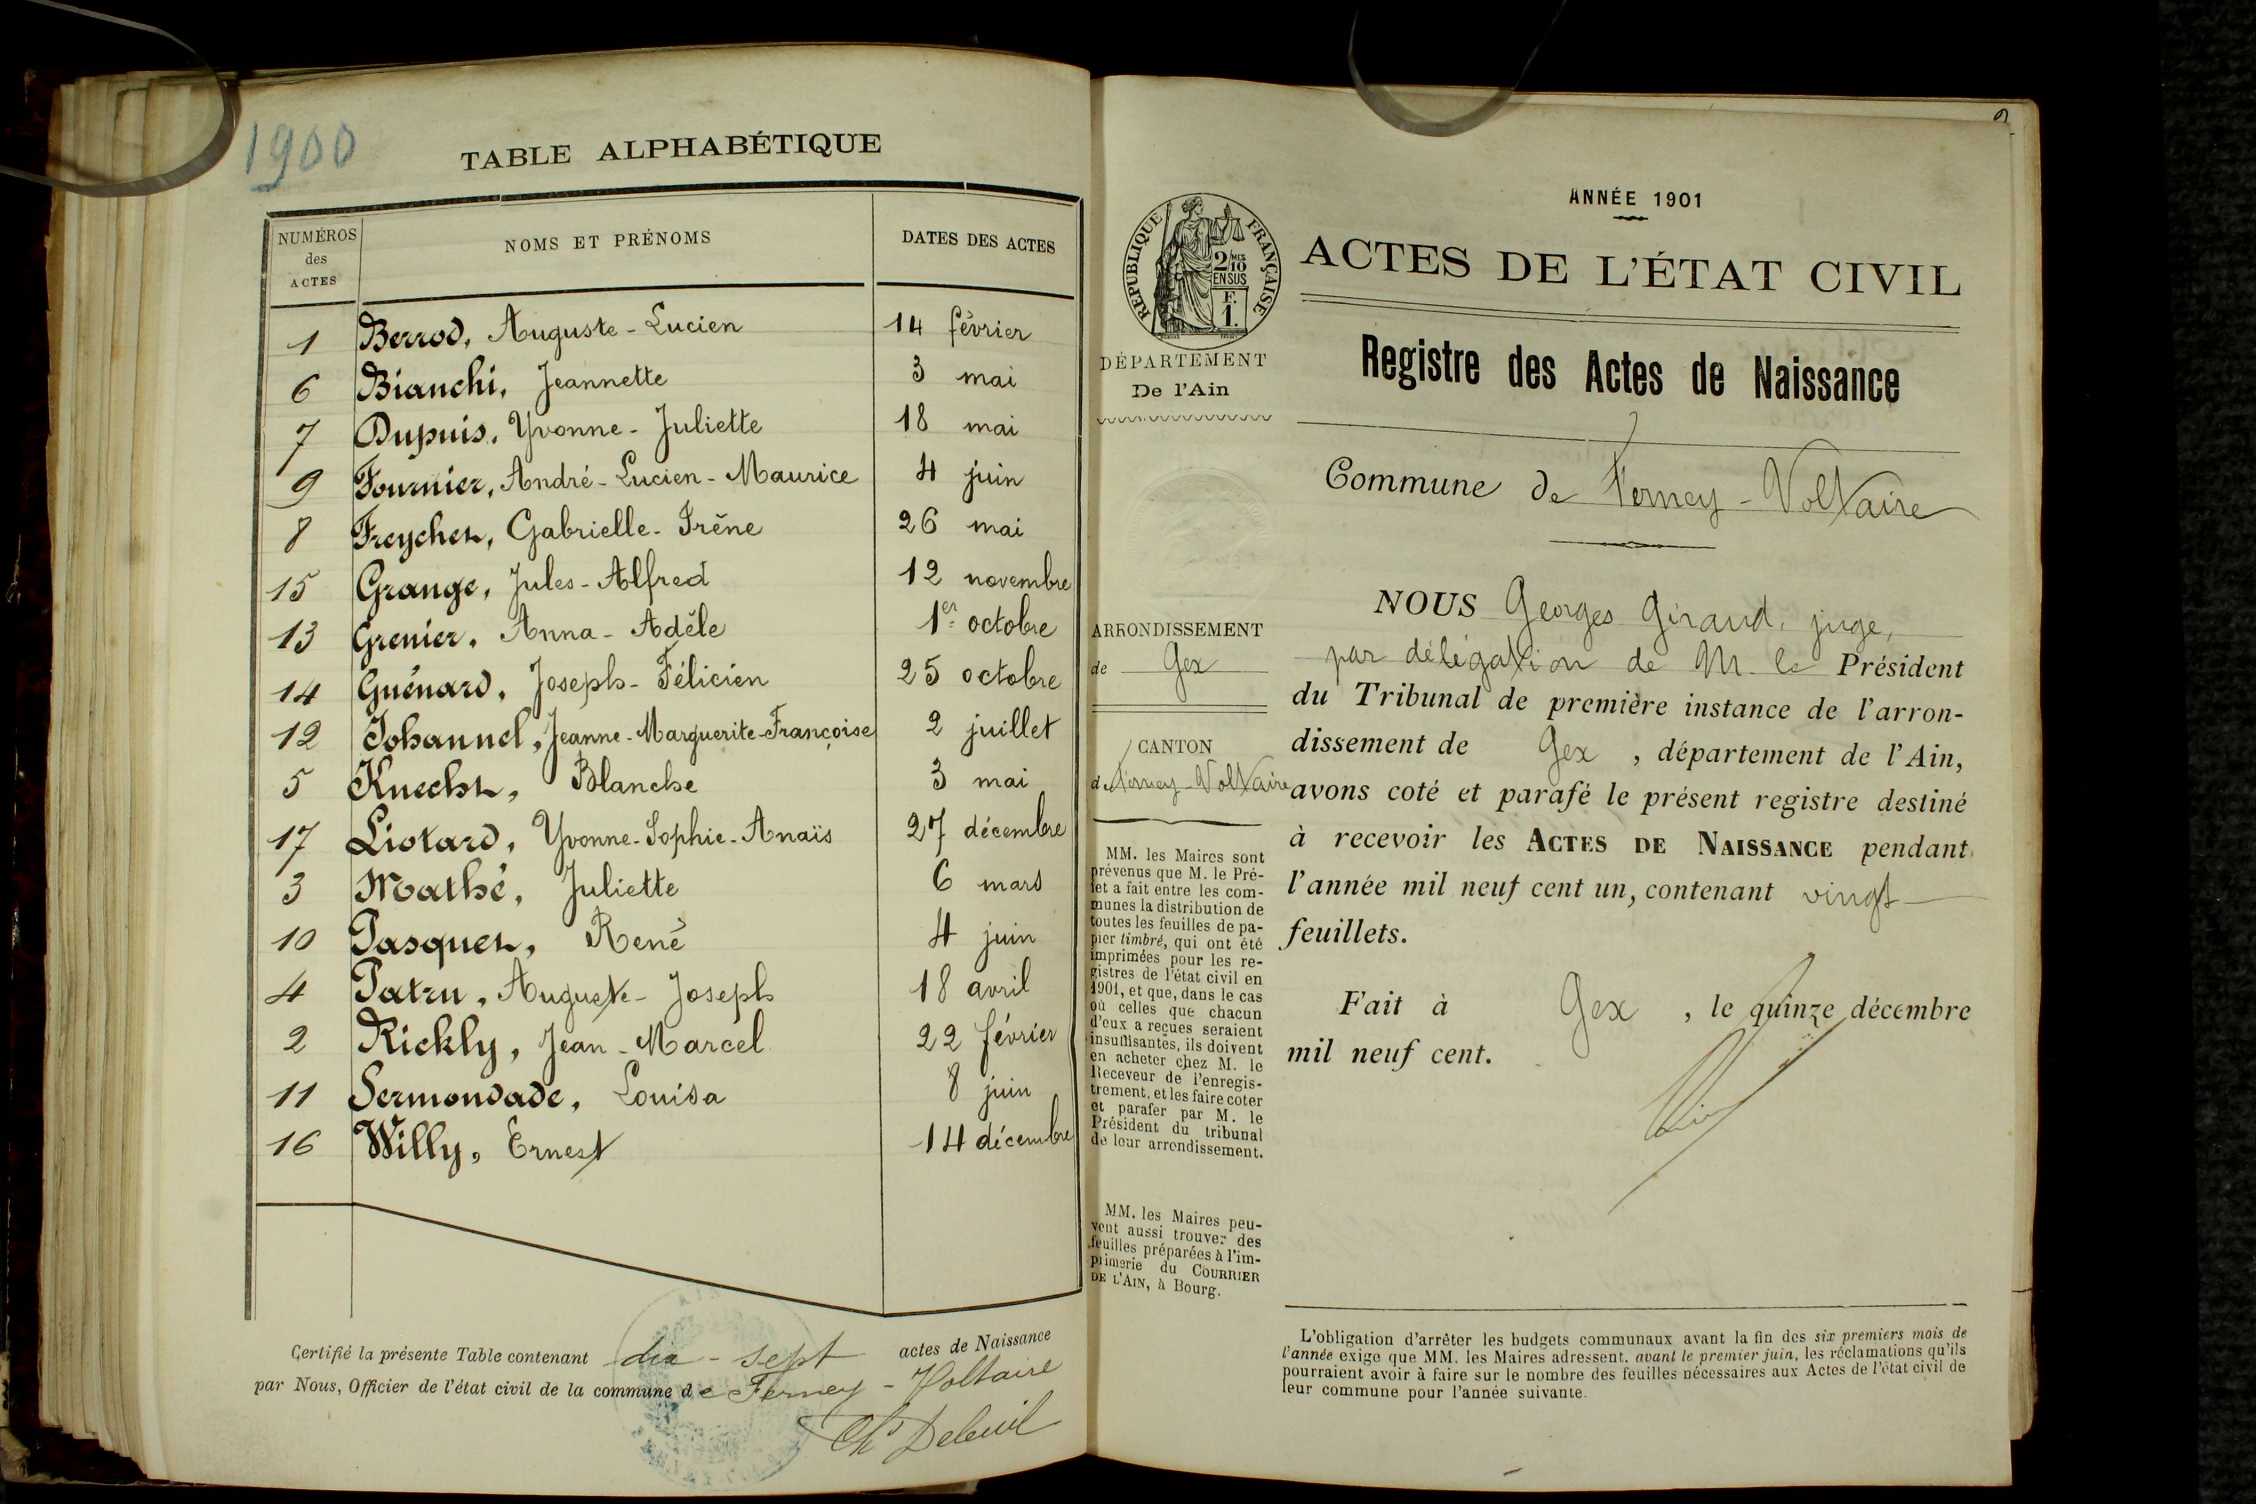 1900
TABLE ALPHABÉTIQUE
NUMÉROS des ACTES | NOMS ET PRÉNOMS | DATES DES ACTES
1 Berrod, Auguste-Lucien 14 février
6 Bianchi, Jeannette 3 mai
7 Dupuis, Yvonne-Juliette 18 mai
9 Fournier, André-Lucien-Maurice 4 juin
8 Freychet, Gabrielle-Irène 26 mai
15 Grange, Jules-Alfred 12 novembre
13 Grenier, Anna-Adèle 1er octobre
14 Guénard, Joseph-Félicien 25 octobre
12 Johannel, Jeanne-Marguerite-Françoise 2 juillet
5 Knecht, Blanche 3 mai
17 Liotard, Yvonne-Sophie-Anaïs 27 décembre
3 Mathé, Juliette 6 mars
10 Pasquet, René 4 juin
4 Patru, Auguste-Joseph 18 avril
2 Rickly, Jean-Marcel 22 février
11 Sermondade, Louisa 8 juin
16 Willy, Ernest 14 décembre
Certifié la présente Table contenant dix-sept actes de Naissance
par Nous, Officier de l'état civil de la commune de Ferney-Voltaire
Ch Deleuil
RÉPUBLIQUE FRANÇAISE
2/10
EN SUS
F.
1.
DÉPARTEMENT
De l'Ain
ARRONDISSEMENT
de Gex
CANTON
de Ferney-Voltaire
MM. les Maires sont
prévenus que M. le Pré-
fet a fait entre les com-
munes la distribution de
toutes les feuilles de pa-
pier timbré, qui ont été
imprimées pour les re-
gistres de l'état civil en
1901, et que, dans le cas
où celles que chacun
d'eux a reçues seraient
insuffisantes, ils doivent
en acheter chez M. le
Receveur de l'enregis-
trement, et les faire coter
et parafer par M. le
Président du tribunal
de leur arrondissement.
MM. les Maires peu-
vent aussi trouver des
feuilles préparées à l'im-
primerie du COURRIER
DE L'AIN, à Bourg.
ANNÉE 1901
ACTES DE L'ÉTAT CIVIL
Registre des Actes de Naissance
Commune de Ferney-Voltaire
NOUS Georges Giraud, juge,
par délégation de M. le Président
du Tribunal de première instance de l'arron-
dissement de Gex, département de l'Ain,
avons coté et parafé le présent registre destiné
à recevoir les ACTES DE NAISSANCE pendant
l'année mil neuf cent un, contenant vingt
feuillets.
Fait à Gex, le quinze décembre
mil neuf cent.
L'obligation d'arrêter les budgets communaux avant la fin des six premiers mois de
l'année exige que MM. les Maires adressent, avant le premier juin, les réclamations qu'ils
pourraient avoir à faire sur le nombre des feuilles nécessaires aux Actes de l'état civil de
leur commune pour l'année suivante.